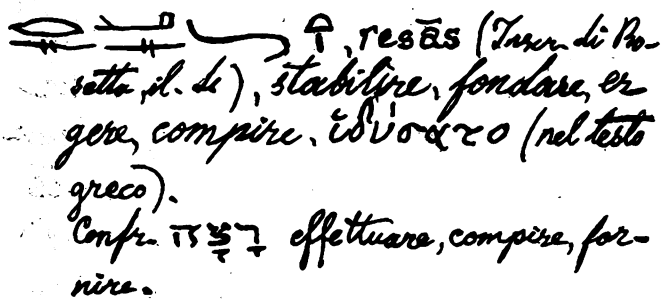 , resās (Inscr. di Ro-
setta, ), stabilire, fondare, er
gere, compire. ἱδύσατο (nel testo
greco).
Confr. effettuare, compire, for-
nire.